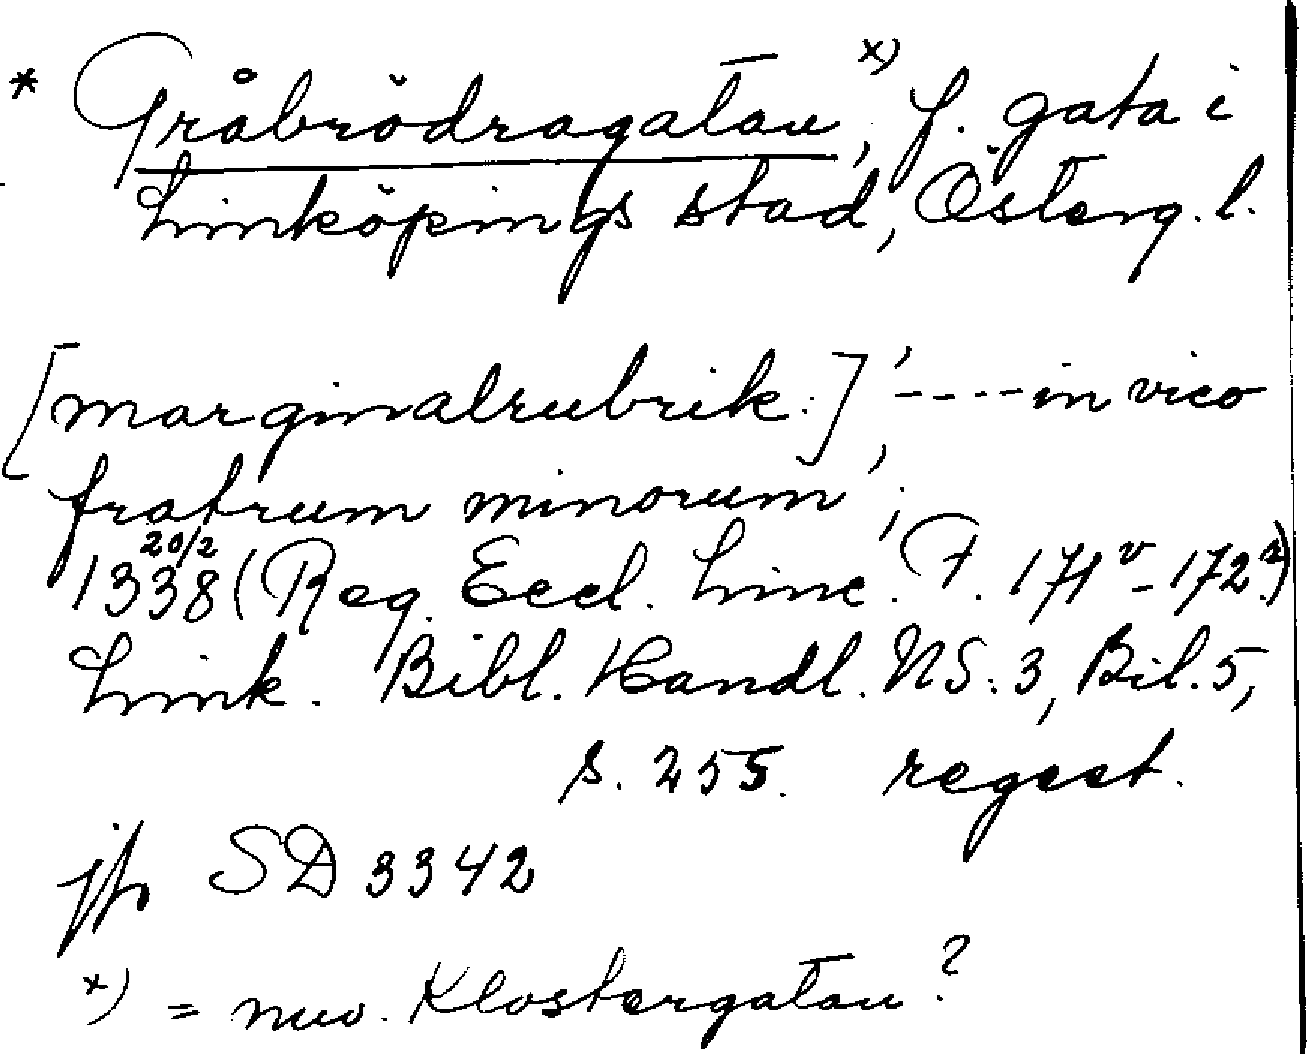 * Gråbrödragatan x), f. gata i
Linköpings stad, Österg. l.
[marginalrubrik:] '----in vico
fratrum minorum';
20/2
1338 (Reg. Eccl. Linc. F. 171v-172r)
Link. Bibl. Handl. NS. 3, Bil. 5,
s. 255. regest.
jfr SD 3342
x) = nuv. Klostergatan?